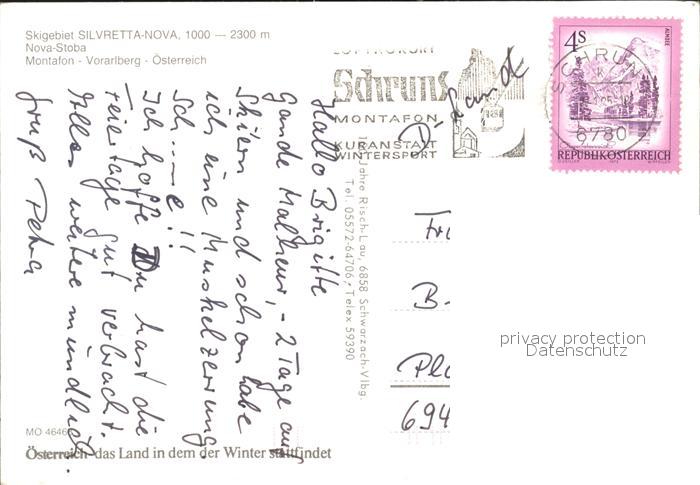 Skigebiet SILVRETTA-NOVA, 1000 — 2300 m
Nova-Stoba
Montafon - Vorarlberg - Österreich
LUFTKURORT
Schruns
MONTAFON
KURANSTALT
WINTERSPORT
4S
ALMSEE
SCHRUNS
6780
REPUBLIK ÖSTERREICH
Hallo Brigitte
Gande Malheur, - 2 Tage auf
Skiern und schon habe
ich eine Muskelzerrung.
Sch....e!!
Ich hoffe Du hast die
Feiertage gut verbracht.
Alles weitere mündlich.
Gruß Petra
Jahre Risch-Lau, 6858 Schwarzach-Vlbg.
Tel. 05572-64706, Telex 59390
B.
694
privacy protection
Datenschutz
MO 4646
Österreich-das Land in dem der Winter stattfindet